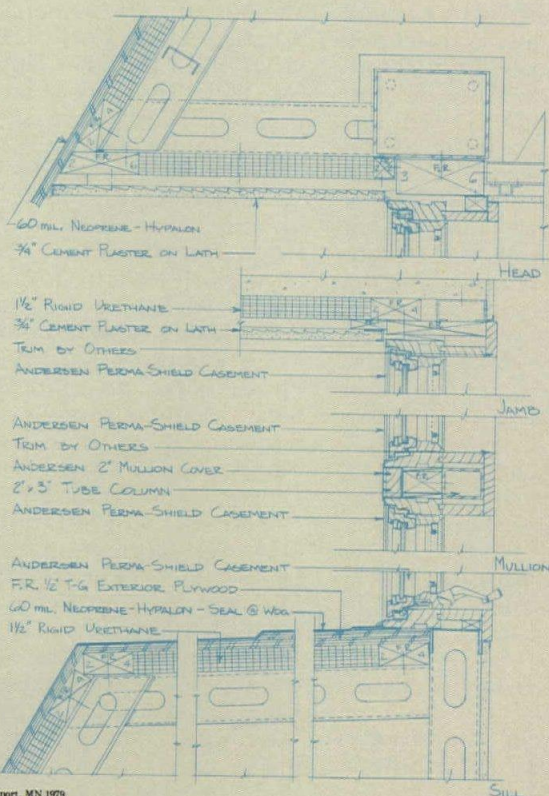 F.R.
2
4
6
3
F.R.
6
60 mil. NEOPRENE-HYPALON
3/4" CEMENT PLASTER ON LATH
HEAD
1 1/2" RIGID URETHANE
F.R.
3/4" CEMENT PLASTER ON LATH
TRIM BY OTHERS
ANDERSEN PERMA-SHIELD CASEMENT
JAMB
ANDERSEN PERMA-SHIELD CASEMENT
TRIM BY OTHERS
ANDERSEN 2" MULLION COVER
F.R.
2" x 3" TUBE COLUMN
ANDERSEN PERMA-SHIELD CASEMENT
MULLION
ANDERSEN PERMA-SHIELD CASEMENT
F.R. 1/2" T-G EXTERIOR PLYWOOD
60 mil. NEOPRENE-HYPALON - SEAL @ WDG
1 1/2" RIGID URETHANE
SILL
port, MN 1979